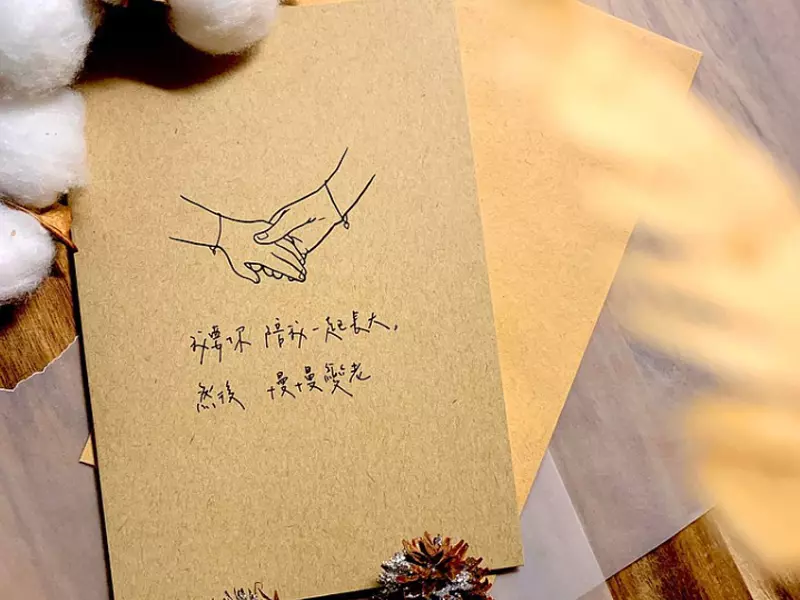 我要你 陪我一起長大，
然後 慢慢變老